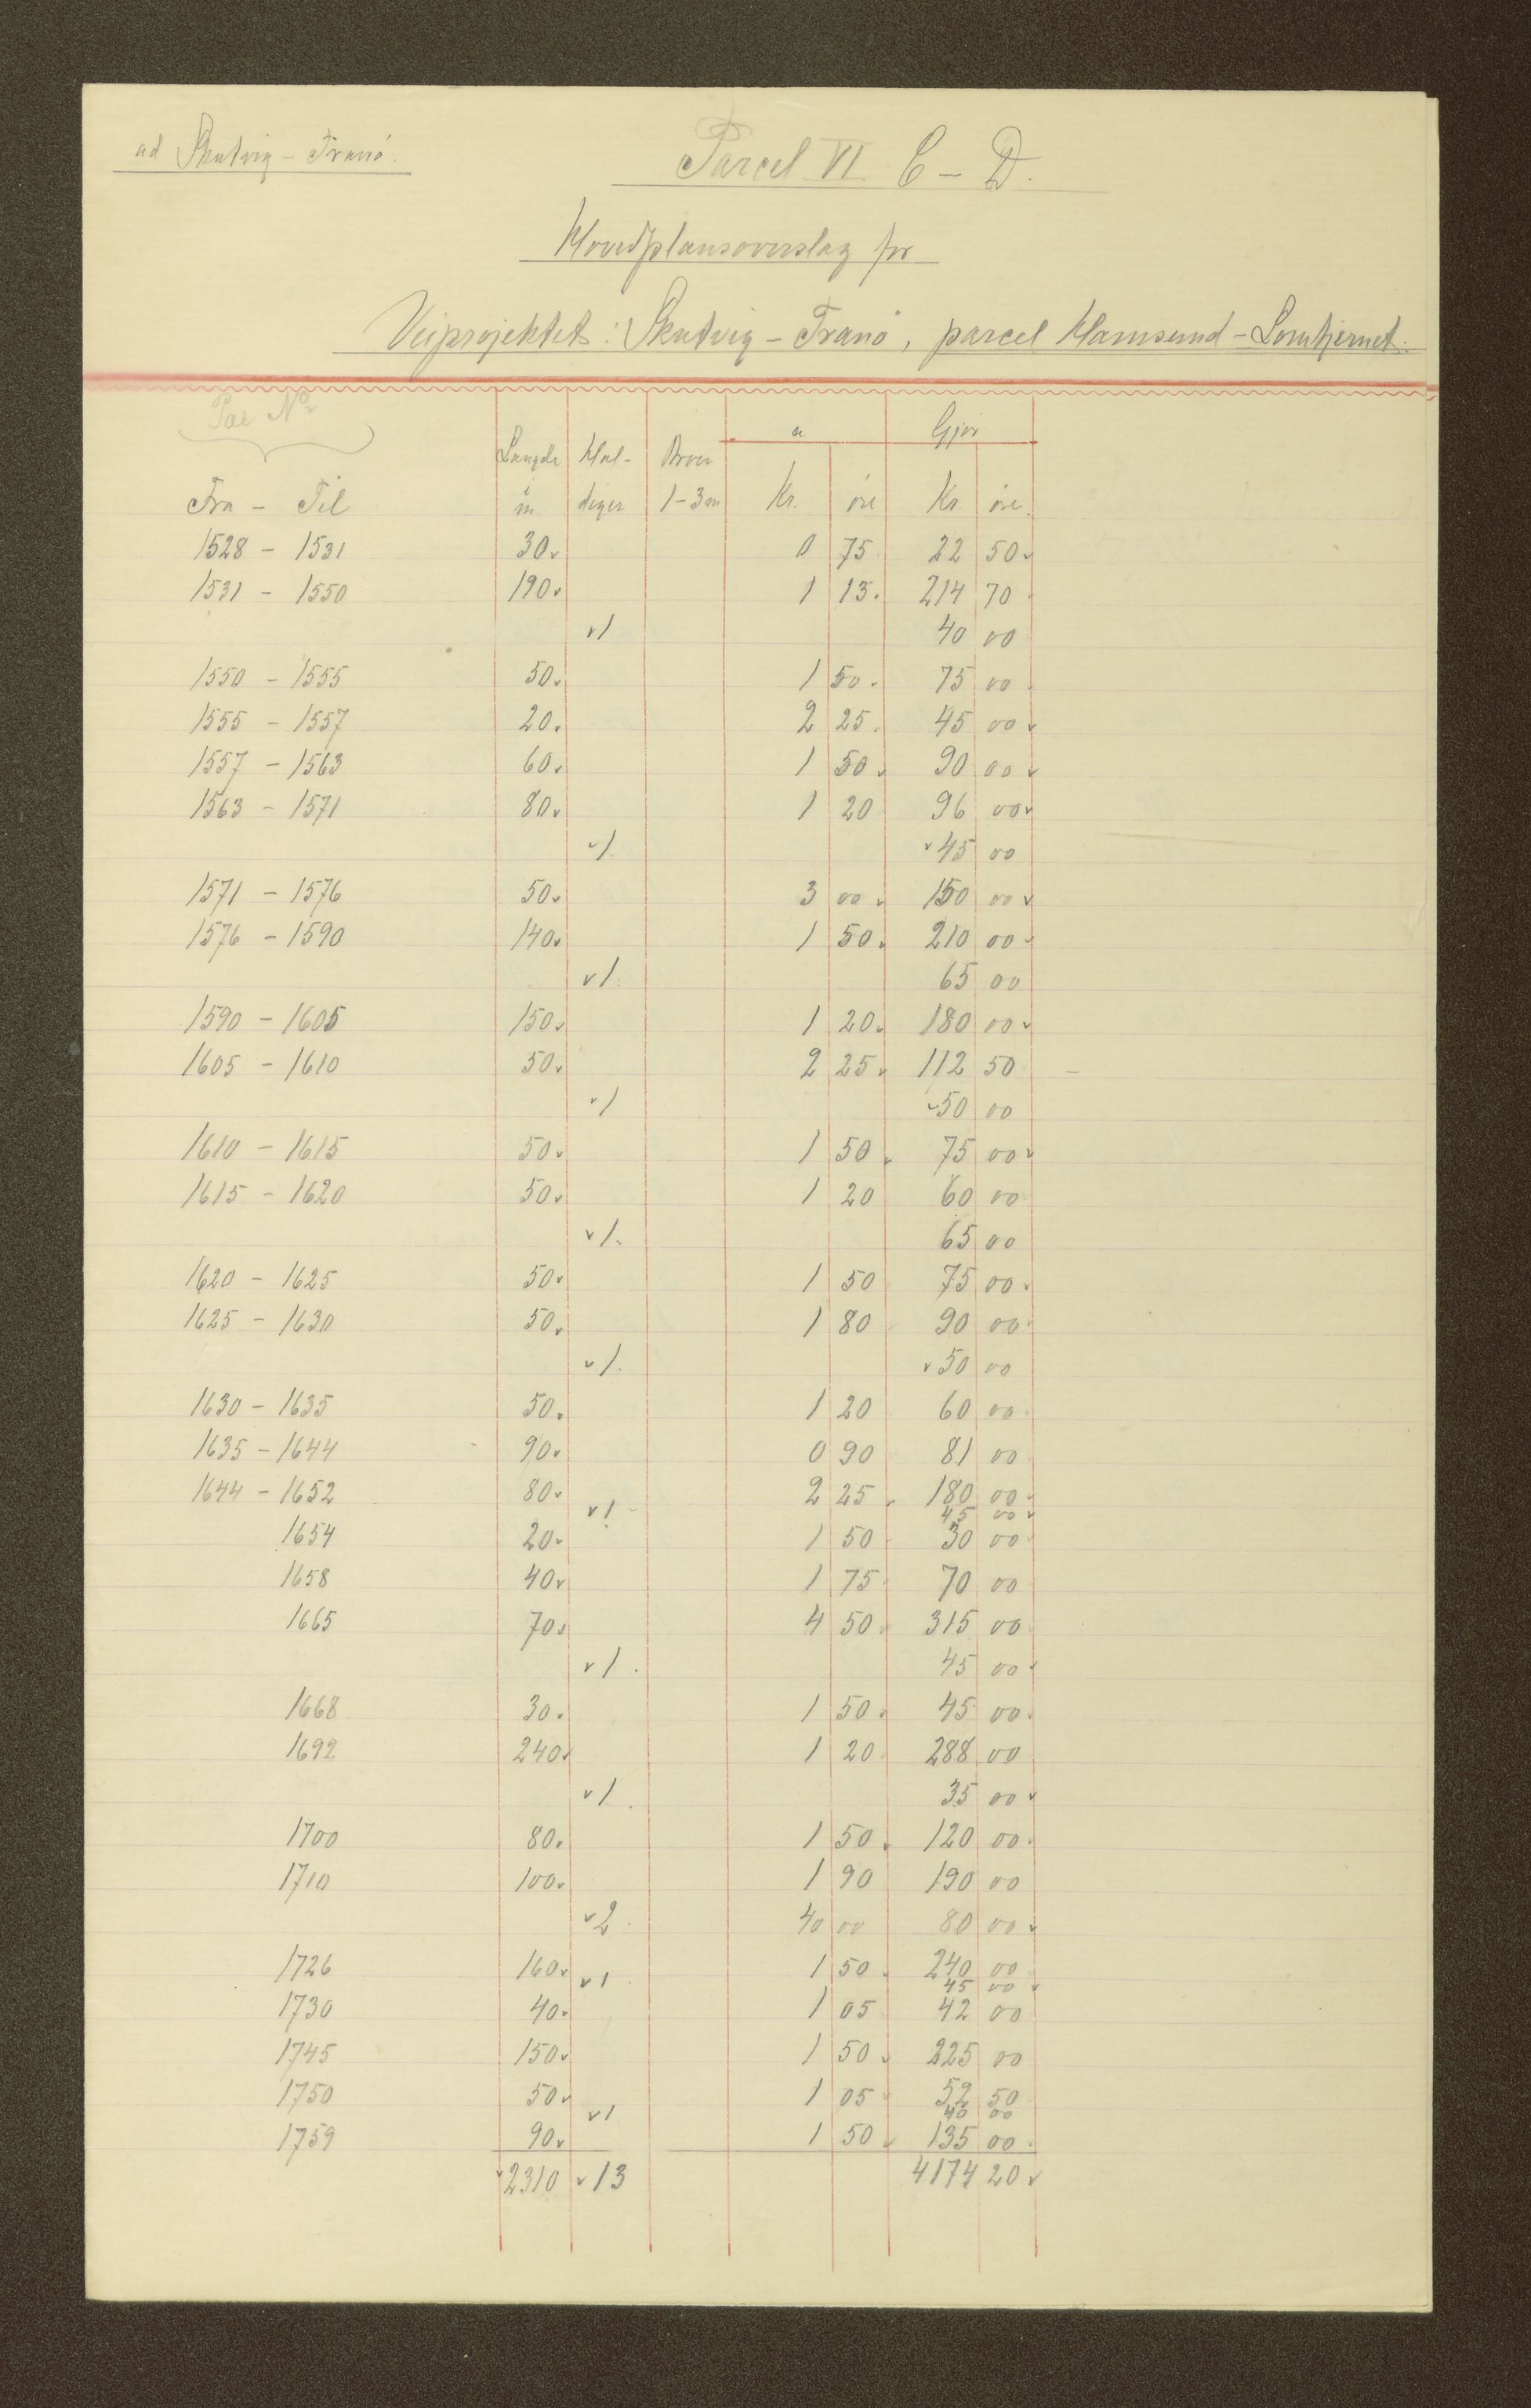 ad Skutvig - Tranö.
Parcel VI C - D.
Hovedplansoverslag for
Veiprojektet: Skutvig - Tranö, parcel Hamsund - Lomtjernet.
Pæl No
a Gjør
Længde Hul- Broer
Fra - Til m. diger 1-3m Kr. öre Kr. öre.
1528 - 1531 30 0 75 22 50
1531 - 1550 190 1 13 214 70
1 40 00
1550 - 1555 50 1 50 75 00
1555 - 1557 20 2 25 45 00
1557 - 1563 60 1 50 90 00
1563 - 1571 80 1 20 96 00
1 45 00
1571 - 1576 50 3 00 150 00
1576 - 1590 140 1 50 210 00
1 65 00
1590 - 1605 150 1 20 180 00
1605 - 1610 50 2 25 112 50
1 50 00
1610 - 1615 50 1 50 75 00
1615 - 1620 50 1 20 60 00
1 65 00
1620 - 1625 50 1 50 75 00
1625 - 1630 50 1 80 90 00
1 50 00
1630 - 1635 50 1 20 60 00
1635 - 1644 90 0 90 81 00
1644 - 1652 80 2 25 180 00
1 45 00
1654 20 1 50 30 00
1658 40 1 75 70 00
1665 70 4 50 315 00
1 45 00
1668 30 1 50 45 00
1692 240 1 20 288 00
1 35 00
1700 80 1 50 120 00
1710 100 1 90 190 00
2 40 00 80 00
1726 160 1 50 240 00
1 45 00
1730 40 1 05 42 00
1745 150 1 50 225 00
1750 50 1 05 52 50
1 40 00
1759 90 1 50 135 00
2310 13 4174 20